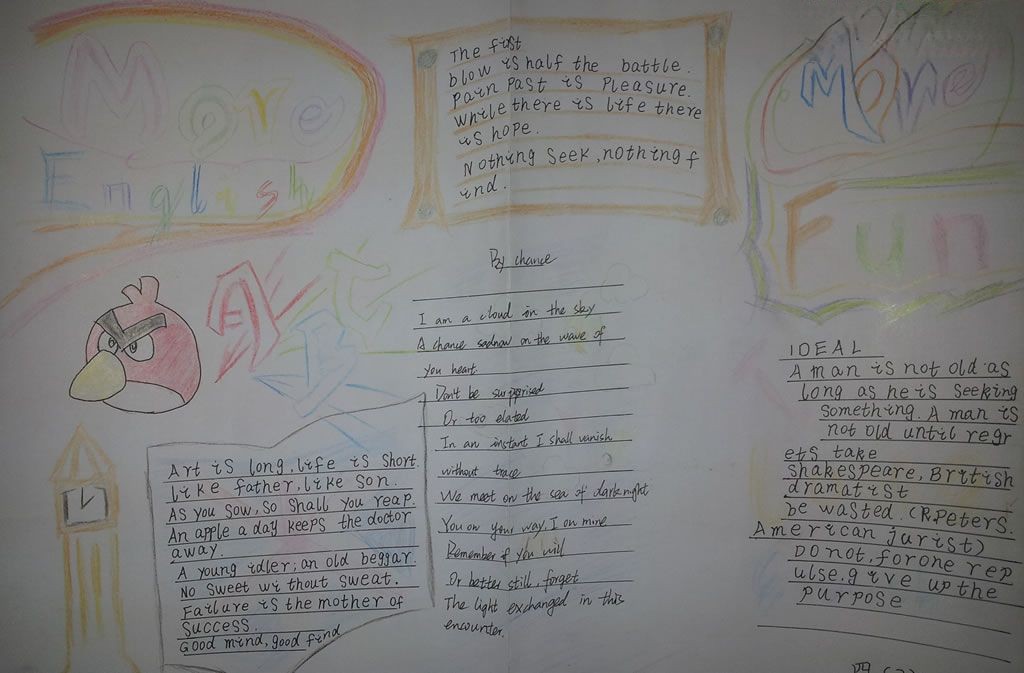 More
English
The first
blow is half the battle.
Pain Past is Pleasure.
While there is life there
is hope.
Nothing Seek, nothing f
ind.
More
Fun
A B C
By chance
I am a cloud in the sky
A chance sadnow on the wave of
you heart.
Don't be surprised
Or too elated
In an instant I shall vanish
without trace
We meet on the sea of dark night
You on your way, I on mine
Remember if you will
Or better still, forget
The light exchanged in this
encounter.
Art is long, life is short.
like father, like son.
As you sow, so shall you reap
An apple a day keeps the doctor
away.
A young idler; an old beggar.
No sweet without sweat.
Failure is the mother of
success.
Good mind, good find
IDEAL
A man is not old as
long as he is seeking
something. A man is
not old until regr
ets take
Shakespeare, British
dramatist
be wasted. (R.Peters.
American jurist)
Do not, for one rep
ulse, give up the
purpose